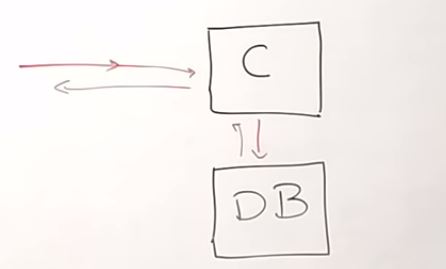 C
DB